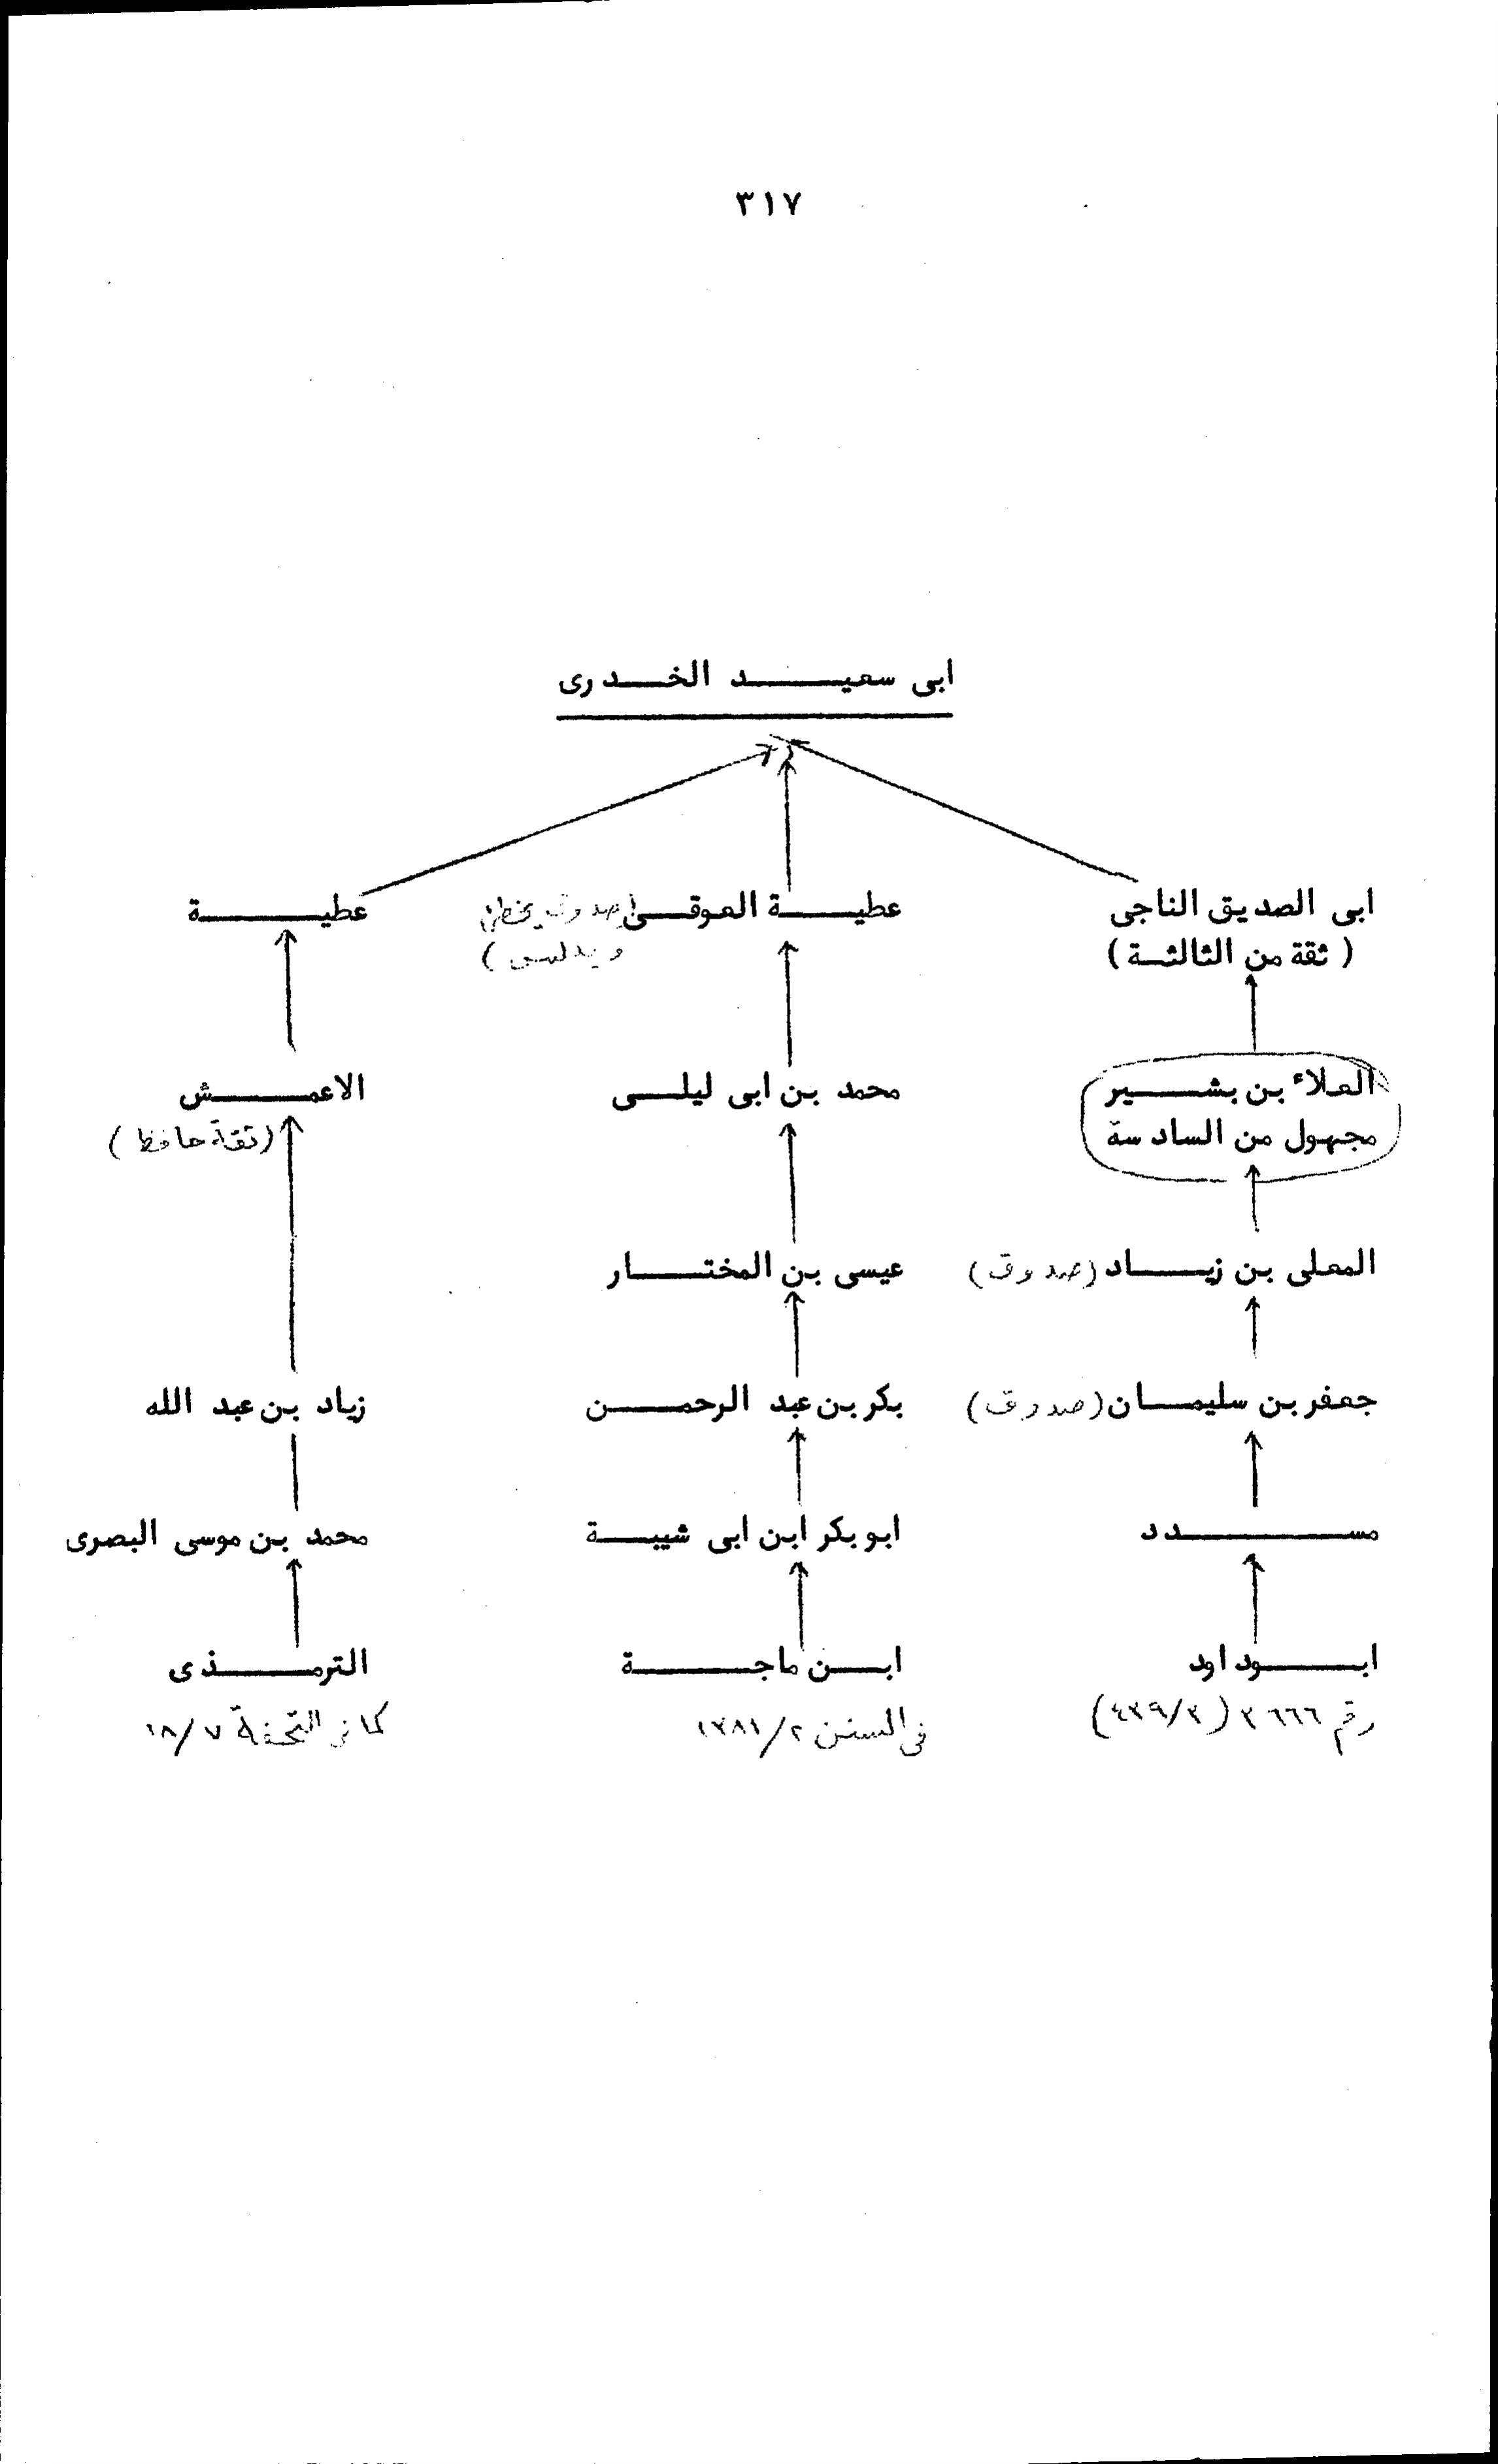 ٣١٧
ابى سعيد الخدرى
ابى الصديق الناجى
( ثقة من الثالثة )
العلاء بن بشير
مجهول من السادسة
المعلى بن زياد (صدوق)
جعفر بن سليمان (صدوق)
مسدد
ابوداود
رقم ٣٦٦٦ (٤٣٩/٣)
عطية العوقى (صدوق يخطئ
ويدلس )
محمد بن ابى ليلى
عيسى بن المختار
بكر بن عبد الرحمن
ابو بكر ابن ابى شيبة
ابن ماجة
فى السنن ١٣٨١/٢
عطية
الاعمش
(ثقة حافظ )
زياد بن عبد الله
محمد بن موسى البصرى
الترمذى
كما فى التحفة ١٨/٧